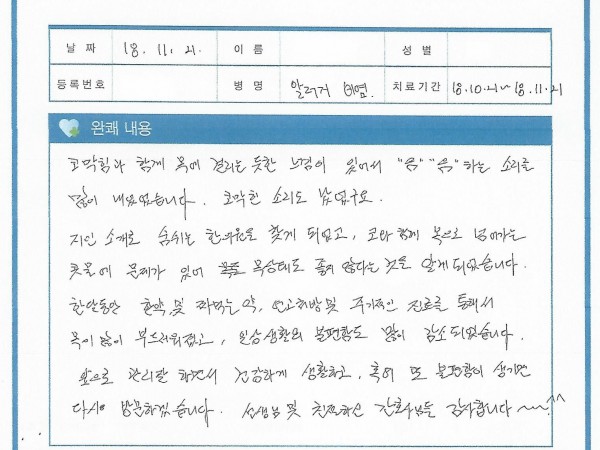 날 짜 18. 11. 21. 이 름 성 별
등록번호 병 명 알러지 비염. 치료기간 18.10.21~18.11.21
완쾌 내용
코막힘과 함께 목에 걸리는듯한 느낌이 있어서 "음" "음" 하는 소리를
많이 내었었습니다. 코막힌 소리도 났었구요.
지인 소개로 숨쉬는 한의원을 찾게 되었고, 코와 함께 목으로 넘어가는
콧물에 문제가 있어 목상태도 좋지 않다는 것을 알게되었습니다.
한달동안 한약, 및 짜먹는 약, 연고처방 및 주기적인 진료를 통해서
목이 많이 부드러워졌고, 일상생활의 불편함도 많이 감소되었습니다.
앞으로 관리잘 하면서 건강하게 생활하고, 혹여 또 불편함이 생기면
다시 방문하겠습니다. 선생님 및 친절하신 간호사님들 감사합니다~^^